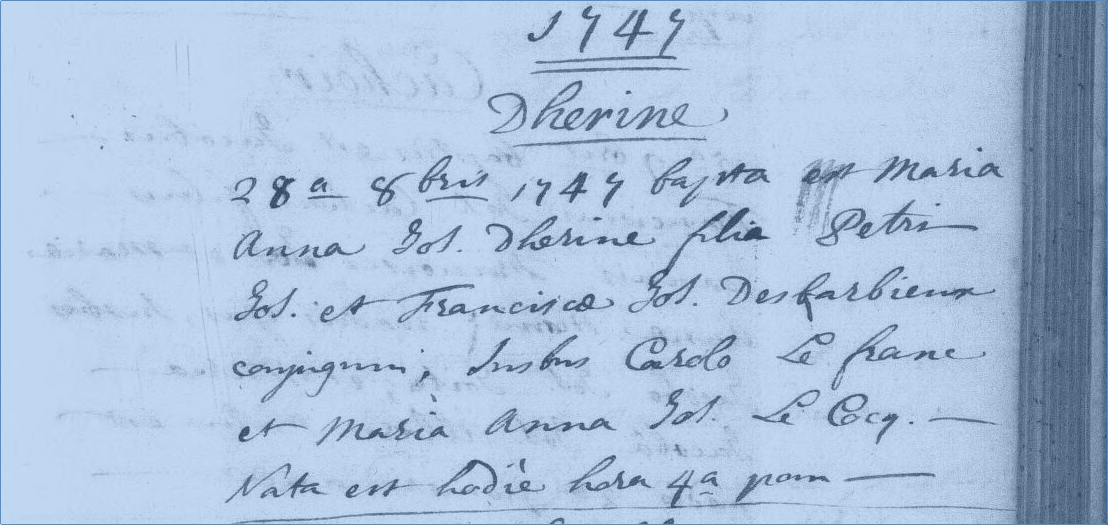 1747
Dherine
28a 8bris 1747 bapta est Maria
Anna Jos. Dherine filia Petri
Jos. et Franciscæ Jos. Desbarbieux
conjugum; Susbus Carolo Le franc
et Maria Anna Jos. Le Cocq. —
Nata est hodiè hora 4a pom —